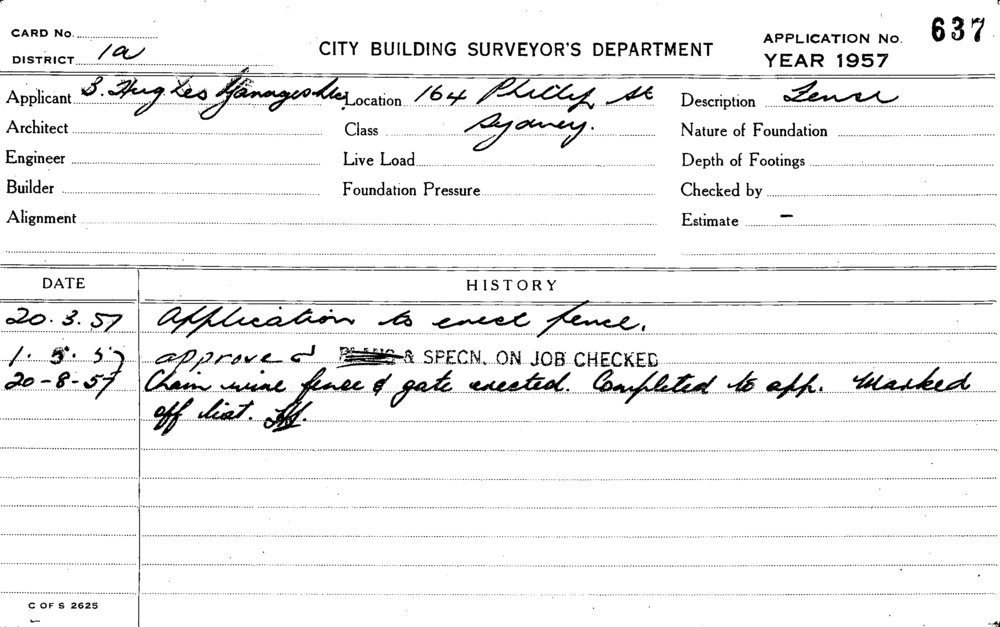 CARD No.
DISTRICT 1a
CITY BUILDING SURVEYOR'S DEPARTMENT
APPLICATION No. 637
YEAR 1957
Applicant S. Hughes Location 164 Phillip St Description Fence
Architect Class Sydney. Nature of Foundation
Engineer Live Load Depth of Footings
Builder Foundation Pressure Checked by
Alignment Estimate –
DATE HISTORY
20.3.57 Application to erect fence.
1.5.57 approved & SPECN. ON JOB CHECKED
20-8-57 Chain wire fence & gate erected. Completed to app. Marked
off list.
C OF S 2625